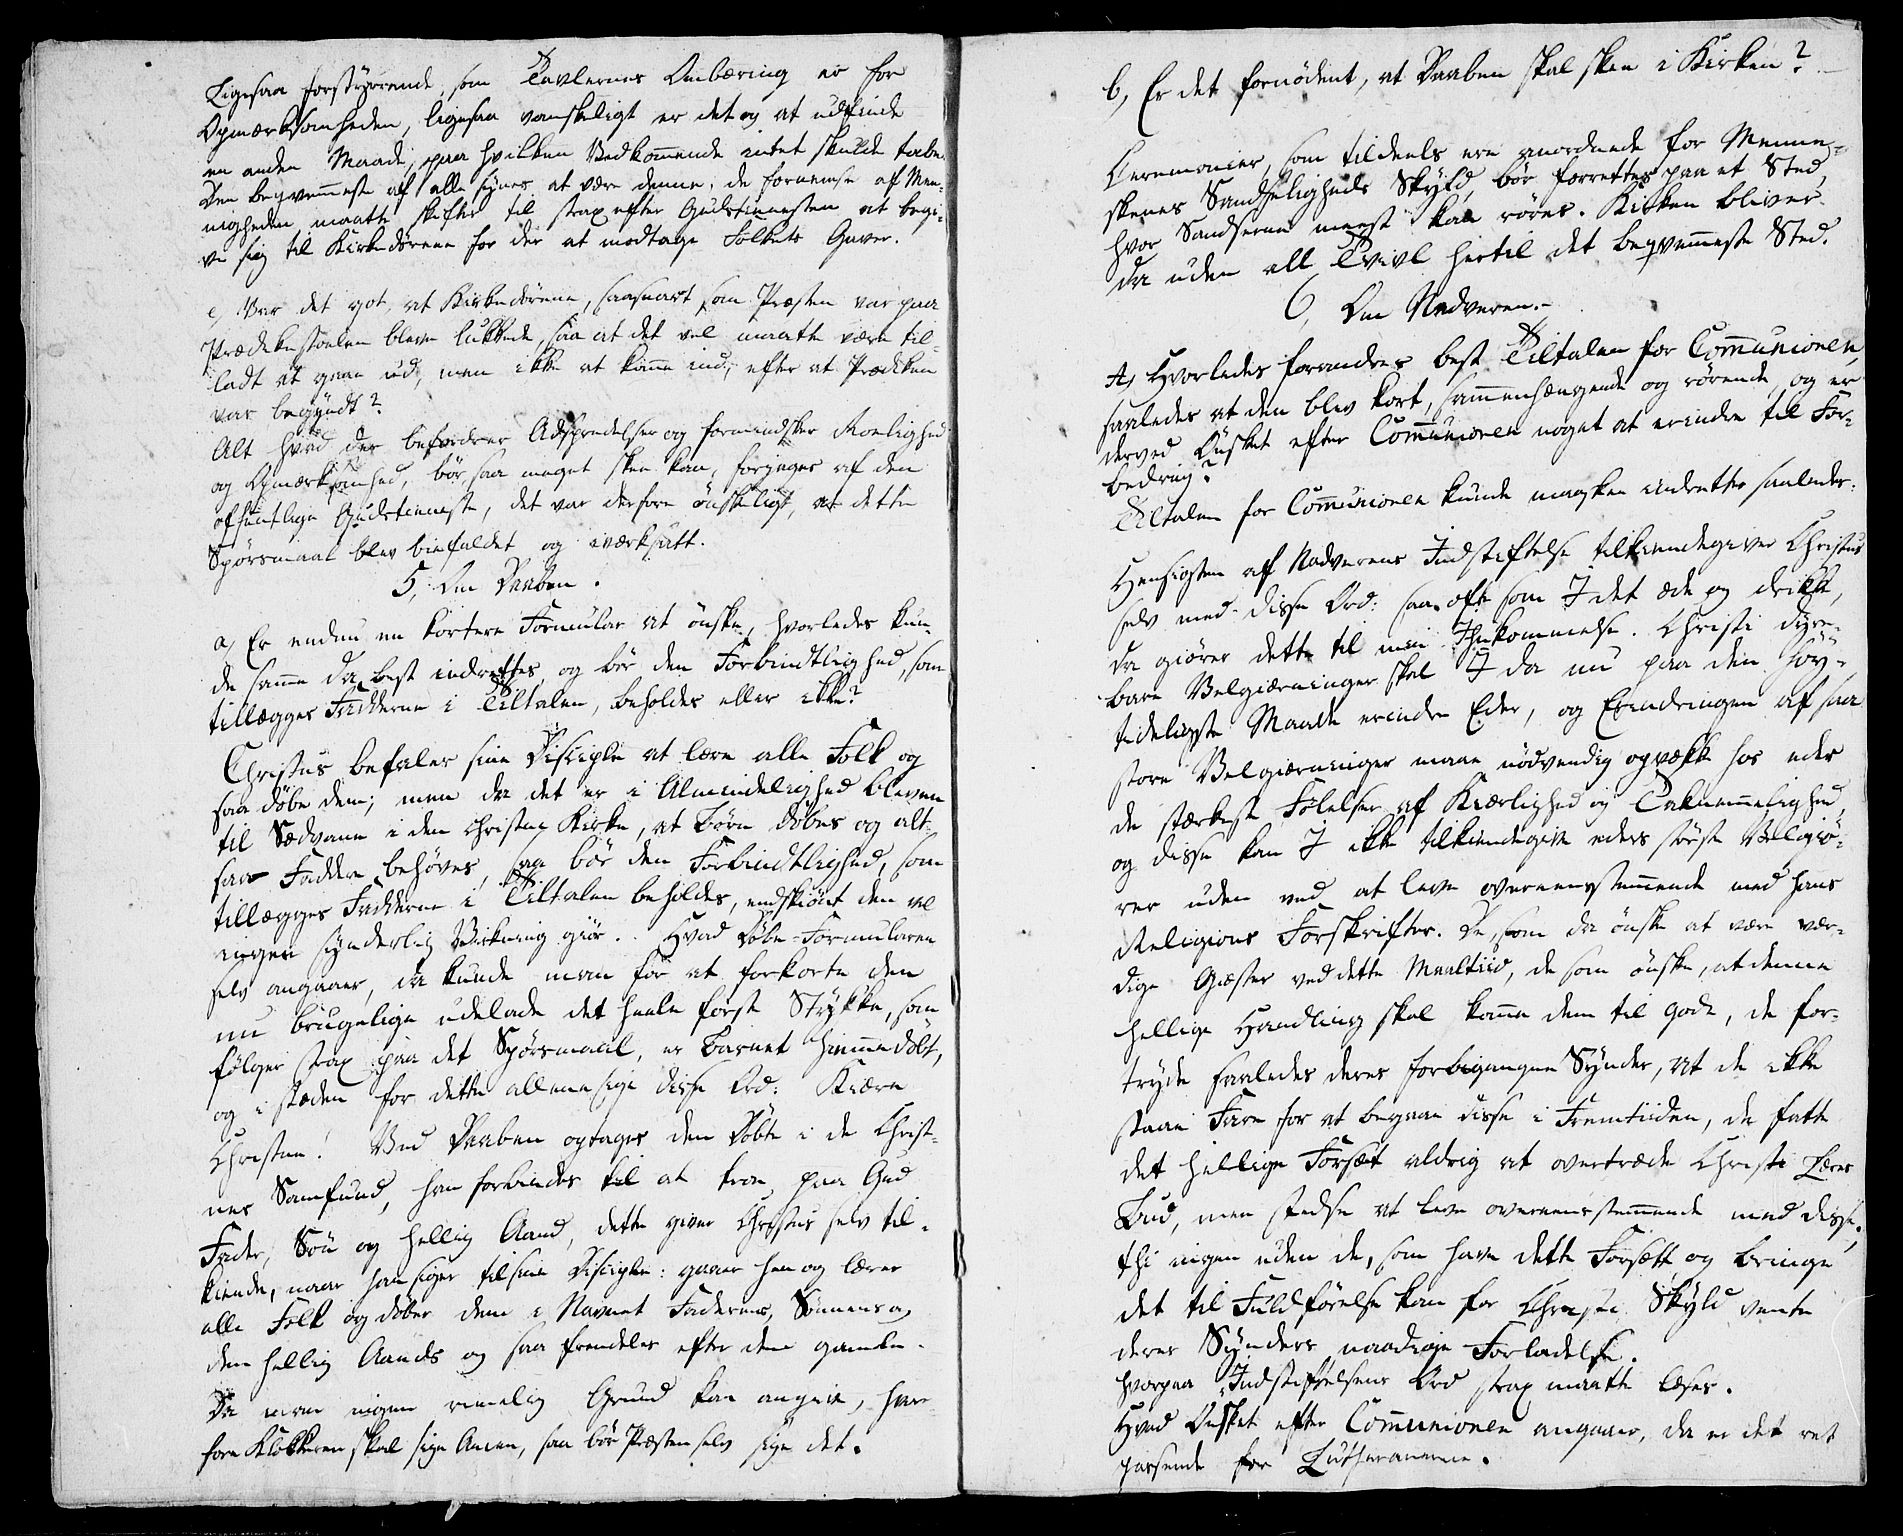 Ligesaa forstyrrende, som Tavlernes Ombæring er for
Opmærksomheden, ligesaa vanskeligt er det og at udfinde
en anden Maade, paa hvilken Vedkommende intet skulde tabe.
Den beqvemmeste af alle synes at være denne, de fornemste af Me-
nigheden maatte skiftes til strax efter Gudstienesten at begi-
ve sig til Kirkedørene for der at modtage Folkets Gaver.
e, Var det got, at Kirkedørene, saasnart som Præsten var paa
Prædikestoelen bleve lukkede, saa at det vel maatte være til-
ladt at gaae ud, men ikke at komme ind, efter at Prædiken
var begyndt?
Alt hvad der befordrer Adspredelser og formindsker Roelighed
og Opmærksomhed, bør, saa meget skee kan, forjages af den
offentlige Gudstieneste, det var derfore ønskeligt, at dette
Spørsmaal blev biefaldet og iværksatt.
5, Om Daaben.
a, Er endnu en kortere Formular at ønske, hvorledes kun-
de samme da best indrettes, og bør den Forbindtlighed, som
tillægges Fadderne i Tiltalen, beholdes eller ikke?
Christus befaler sine Disciple at lære alle Folk og
saa døbe dem; men da det er i Almindelighed bleven
til Sædvane i den christne Kirke, at Børn døbes og alt-
saa Faddere behøves, saa bør den Forbindtlighed, som
tillægges Fadderne i Tiltalen beholdes, endskiønt den vel
ingen synderlig Virkning giør. Hvad Døbe-Formularen
selv angaaer, da kunde man for at forkorte den
nu brugelige udelade det heele første Stykke, som
følger strax paa det Spørsmaal, er Barnet hiemmedøbt,
og i stæden for dette allene sige disse Ord: Kiære
Christne! Ved Daaben optages den Døbte i de Christ-
nes Samfund, han forbindes til at troe paa Gud
Fader, Søn og hellig Aand, dette giver Christus selv til-
kiende, naar han siger til sine Disciple: gaaer hen og lærer
alle Folk og døber dem i Navnet Faderens, Sønnens og
den hellig Aands og saa fremdeles efter den gamle.
Da man ingen rimelig Grund kan angive, hvor-
fore Klokkeren skal sige Amen, saa bør Præsten selv sige det.
b, Er det fornødent, at Daaben skal skee i Kirken?
Ceremonier, som tildeels ere anordnede for Menne-
skenes Sandseligheds Skyld, bør forrettes paa et Sted,
hvor Sandserne meest kan røres. Kirken bliver
da uden all Tvivl hertil det beqvemmeste Sted.
6, Om Nadveren.
A, Hvorledes forandres best Tiltalen for Communionen,
saaledes at den blev kort, sammenhængende og rørende, og er
derved Ønsket efter Communionen noget at erindre til For-
bedring?
Tiltalen for Communionen kunde maaskee indrettes saaledes:
Hensigten af Nadverens Indstiftelse tilkiendegiver Christus
selv med disse Ord: saa ofte som I det æde og drikke,
da giører dette til min Ihukommelse. Christi dyre-
bare Velgierninger skal I da nu paa den høy-
tideligste Maade erindre Eder, og Erindringen af saa
store Velgierninger maae nødvendig opvække hos eder
de stærkeste Følelser af Kiærlighed og Taknemmelighed,
og disse kan I ikke tilkiendegive eders største Velgiø-
rer uden ved at leve overeensstemmende med hans
Religions Forskrifter. De, som da ønske at være vær-
dige Giæster ved dette Maaltiid, de som ønske, at denne
hellige Handling skal komme dem til gode, de for-
tryde saaledes deres forbigangne Synder, at de ikke
staae Fare for at begaae disse i Fremtiiden, de fatte
det hellige Forsæt aldrig at overtræde Christi Læres
Bud, men stedse at leve overeensstemmende med disse,
thi ingen uden de, som have dette Forsætt og bringe
det til Fuldførelse kan for Christi Skyld vente
deres Synders naadige Forladelse.
hvorpaa Indstiftelsens Ord strax maatte læses.
Hvad Ønsket efter Communionen angaaer, da er det ret
passende for Lutheranerne.